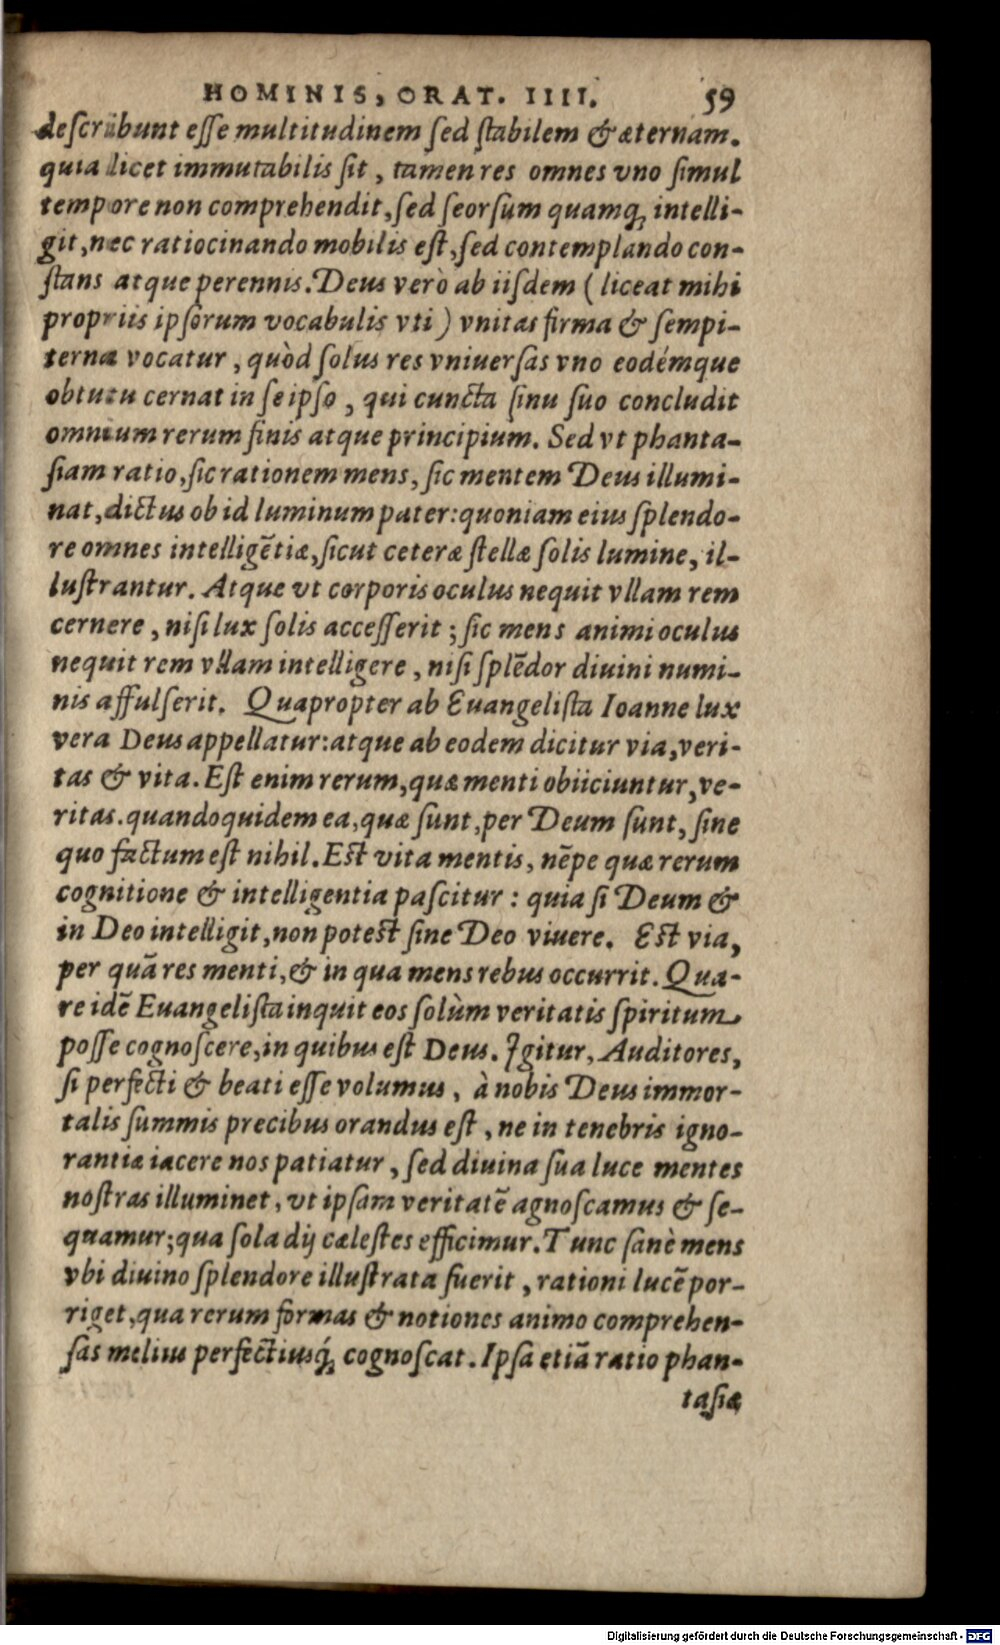 HOMINIS, ORAT. IIII. 59
describunt esse multitudinem sed stabilem & æternam.
quia licet immutabilis sit, tamen res omnes vno simul
tempore non comprehendit, sed seorsum quamq; intelli-
git, nec ratiocinando mobilis est, sed contemplando con-
stans atque perennis. Deus verò ab iisdem (liceat mihi
propriis ipsorum vocabulis vti) vnitas firma & sempi-
terna vocatur, quòd solus res vniuersas vno eodémque
obtutu cernat in se ipso, qui cuncta sinu suo concludit
omnium rerum finis atque principium. Sed vt phanta-
siam ratio, sic rationem mens, sic mentem Deus illumi-
nat, dictus ob id luminum pater: quoniam eius splendo-
re omnes intelligētiæ, sicut ceteræ stellæ solis lumine, il-
lustrantur. Atque vt corporis oculus nequit vllam rem
cernere, nisi lux solis accesserit; sic mens animi oculus
nequit rem vllam intelligere, nisi splēdor diuini numi-
nis affulserit. Quapropter ab Euangelista Ioanne lux
vera Deus appellatur: atque ab eodem dicitur via, veri-
tas & vita. Est enim rerum, quæ menti obiiciuntur, ve-
ritas. quandoquidem ea, quæ sunt, per Deum sunt, sine
quo factum est nihil. Est vita mentis, nēpe quæ rerum
cognitione & intelligentia pascitur: quia si Deum &
in Deo intelligit, non potest sine Deo viuere. Est via,
per quā res menti, & in qua mens rebus occurrit. Qua-
re idē Euangelista inquit eos solùm veritatis spiritum
posse cognoscere, in quibus est Deus. Igitur, Auditores,
si perfecti & beati esse volumus, à nobis Deus immor-
talis summis precibus orandus est, ne in tenebris igno-
rantiæ iacere nos patiatur, sed diuina sua luce mentes
nostras illuminet, vt ipsam veritatē agnoscamus & se-
quamur; qua sola dij cælestes efficimur. Tunc sanè mens
vbi diuino splendore illustrata fuerit, rationi lucē por-
riget, qua rerum formas & notiones animo comprehen-
sas melius perfectiusq́; cognoscat. Ipsa etiā ratio phan-
tasiæ
Digitalisierung gefördert durch die Deutsche Forschungsgemeinschaft - DFG